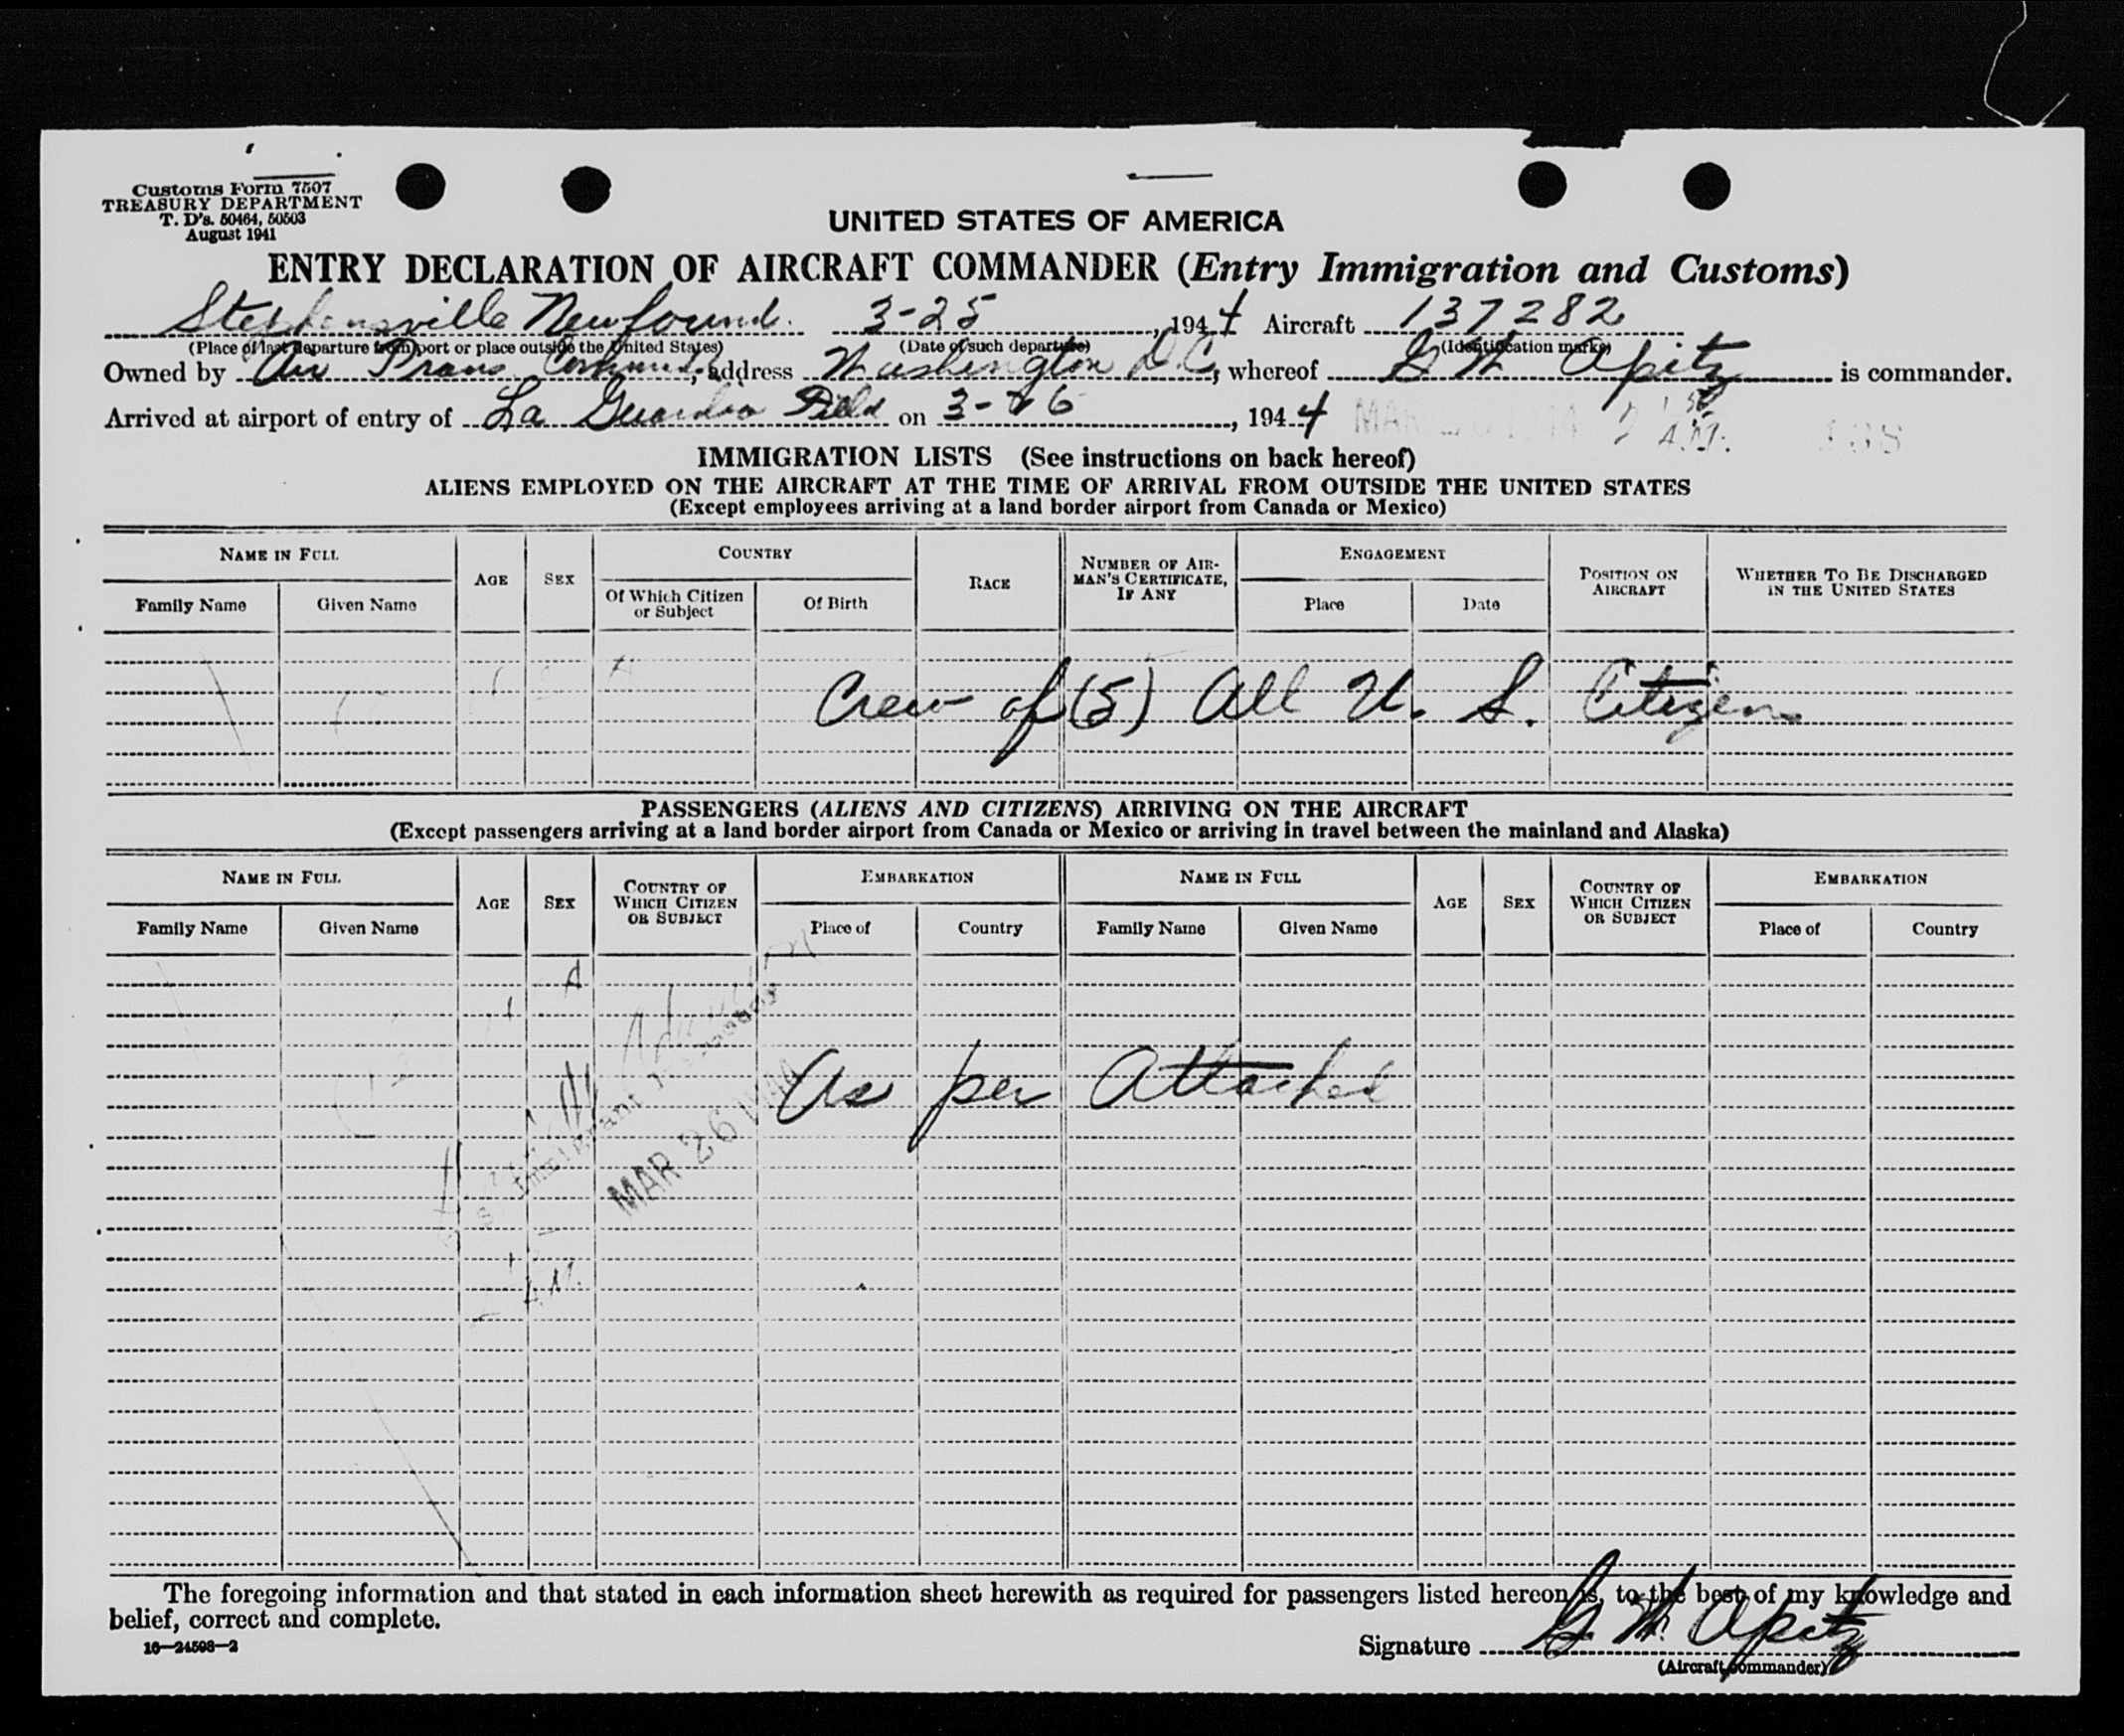 Customs Form 7507
TREASURY DEPARTMENT
T. D's. 50464, 50503
August 1941
UNITED STATES OF AMERICA
ENTRY DECLARATION OF AIRCRAFT COMMANDER (Entry Immigration and Customs)
Stephensville Newfound. 3-25, 1944 Aircraft 137282
(Place of last departure from port or place outside the United States) (Date of such departure) (Identification marks)
Owned by Air Trans. Command, address Washington D.C., whereof G W Apitz is commander.
Arrived at airport of entry of La Guardia Field on 3-26, 1944 A.M.
IMMIGRATION LISTS (See instructions on back hereof)
ALIENS EMPLOYED ON THE AIRCRAFT AT THE TIME OF ARRIVAL FROM OUTSIDE THE UNITED STATES
(Except employees arriving at a land border airport from Canada or Mexico)
NAME IN FULL AGE SEX COUNTRY RACE NUMBER OF AIRMAN'S CERTIFICATE, IF ANY ENGAGEMENT POSITION ON AIRCRAFT WHETHER TO BE DISCHARGED IN THE UNITED STATES
Family Name Given Name Of Which Citizen or Subject Of Birth Place Date
Crew of (5) All U. S. Citizens
PASSENGERS (ALIENS AND CITIZENS) ARRIVING ON THE AIRCRAFT
(Except passengers arriving at a land border airport from Canada or Mexico or arriving in travel between the mainland and Alaska)
NAME IN FULL AGE SEX COUNTRY OF WHICH CITIZEN OR SUBJECT EMBARKATION NAME IN FULL AGE SEX COUNTRY OF WHICH CITIZEN OR SUBJECT EMBARKATION
Family Name Given Name Place of Country Family Name Given Name Place of Country
As per Attached
MAR 26 1944
A.M.
The foregoing information and that stated in each information sheet herewith as required for passengers listed hereon is, to the best of my knowledge and
belief, correct and complete.
16—24598-2
Signature G. W. Apitz
(Aircraft commander)